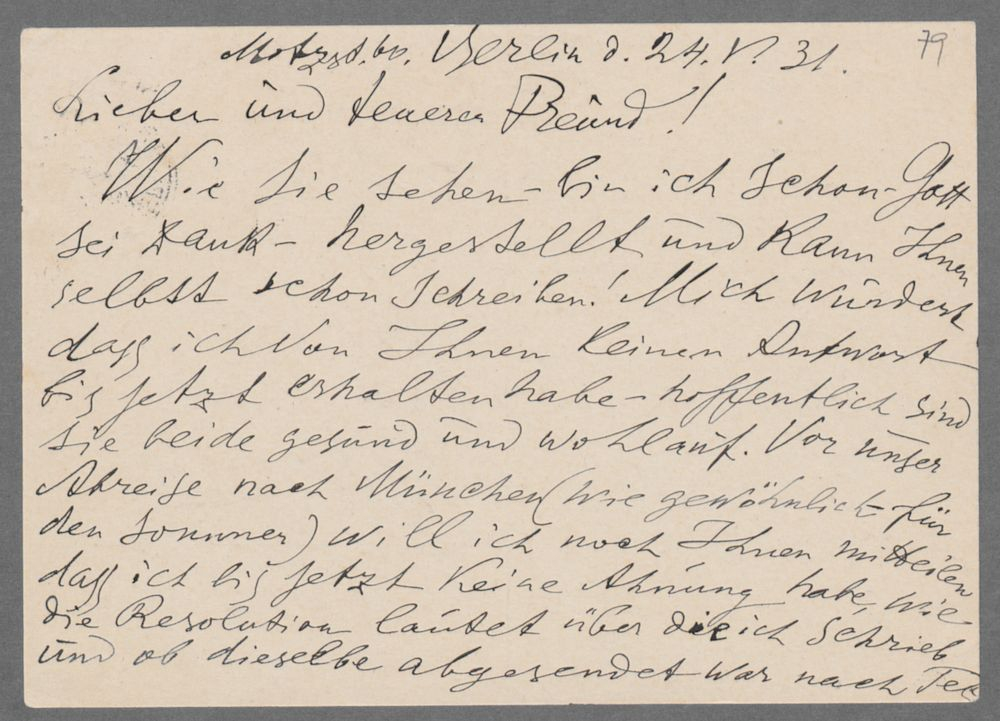 79
Motzst. 60. Berlin d. 24. V. 31.
Lieber und teuerer Freund!
Wie Sie sehen – bin ich schon – Gott
sei Dank – hergestellt und kann Ihnen
selbst schon schreiben! Mich wundert
dass ich von Ihnen keinen Antwort
bis jetzt erhalten habe – hoffentlich sind
Sie beide gesund und wohlauf. Vor unser
Abreise nach München (wie gewöhnlich für
den Sommer) will ich noch Ihnen mitteilen
dass ich bis jetzt keine Ahnung habe, wie
die Resolution lautet über die ich schrieb
und ob dieselbe abgesendet war nach